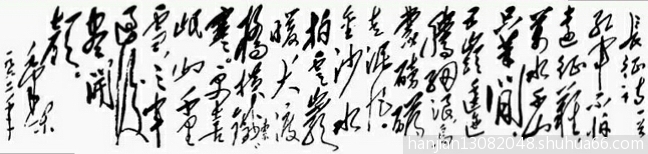 長征詩一首
紅軍不怕
遠征難。
萬水千山
只等閒。
五嶺逶迤
騰細浪,烏
蒙磅礴
走泥丸。
金沙水
拍雲崖
暖,大渡
橋橫鐵索
寒。更喜
岷山千里
雪,三軍
過後
盡開
顏。
毛澤東
一九六二年
hanjian13082048.shuhua66.com